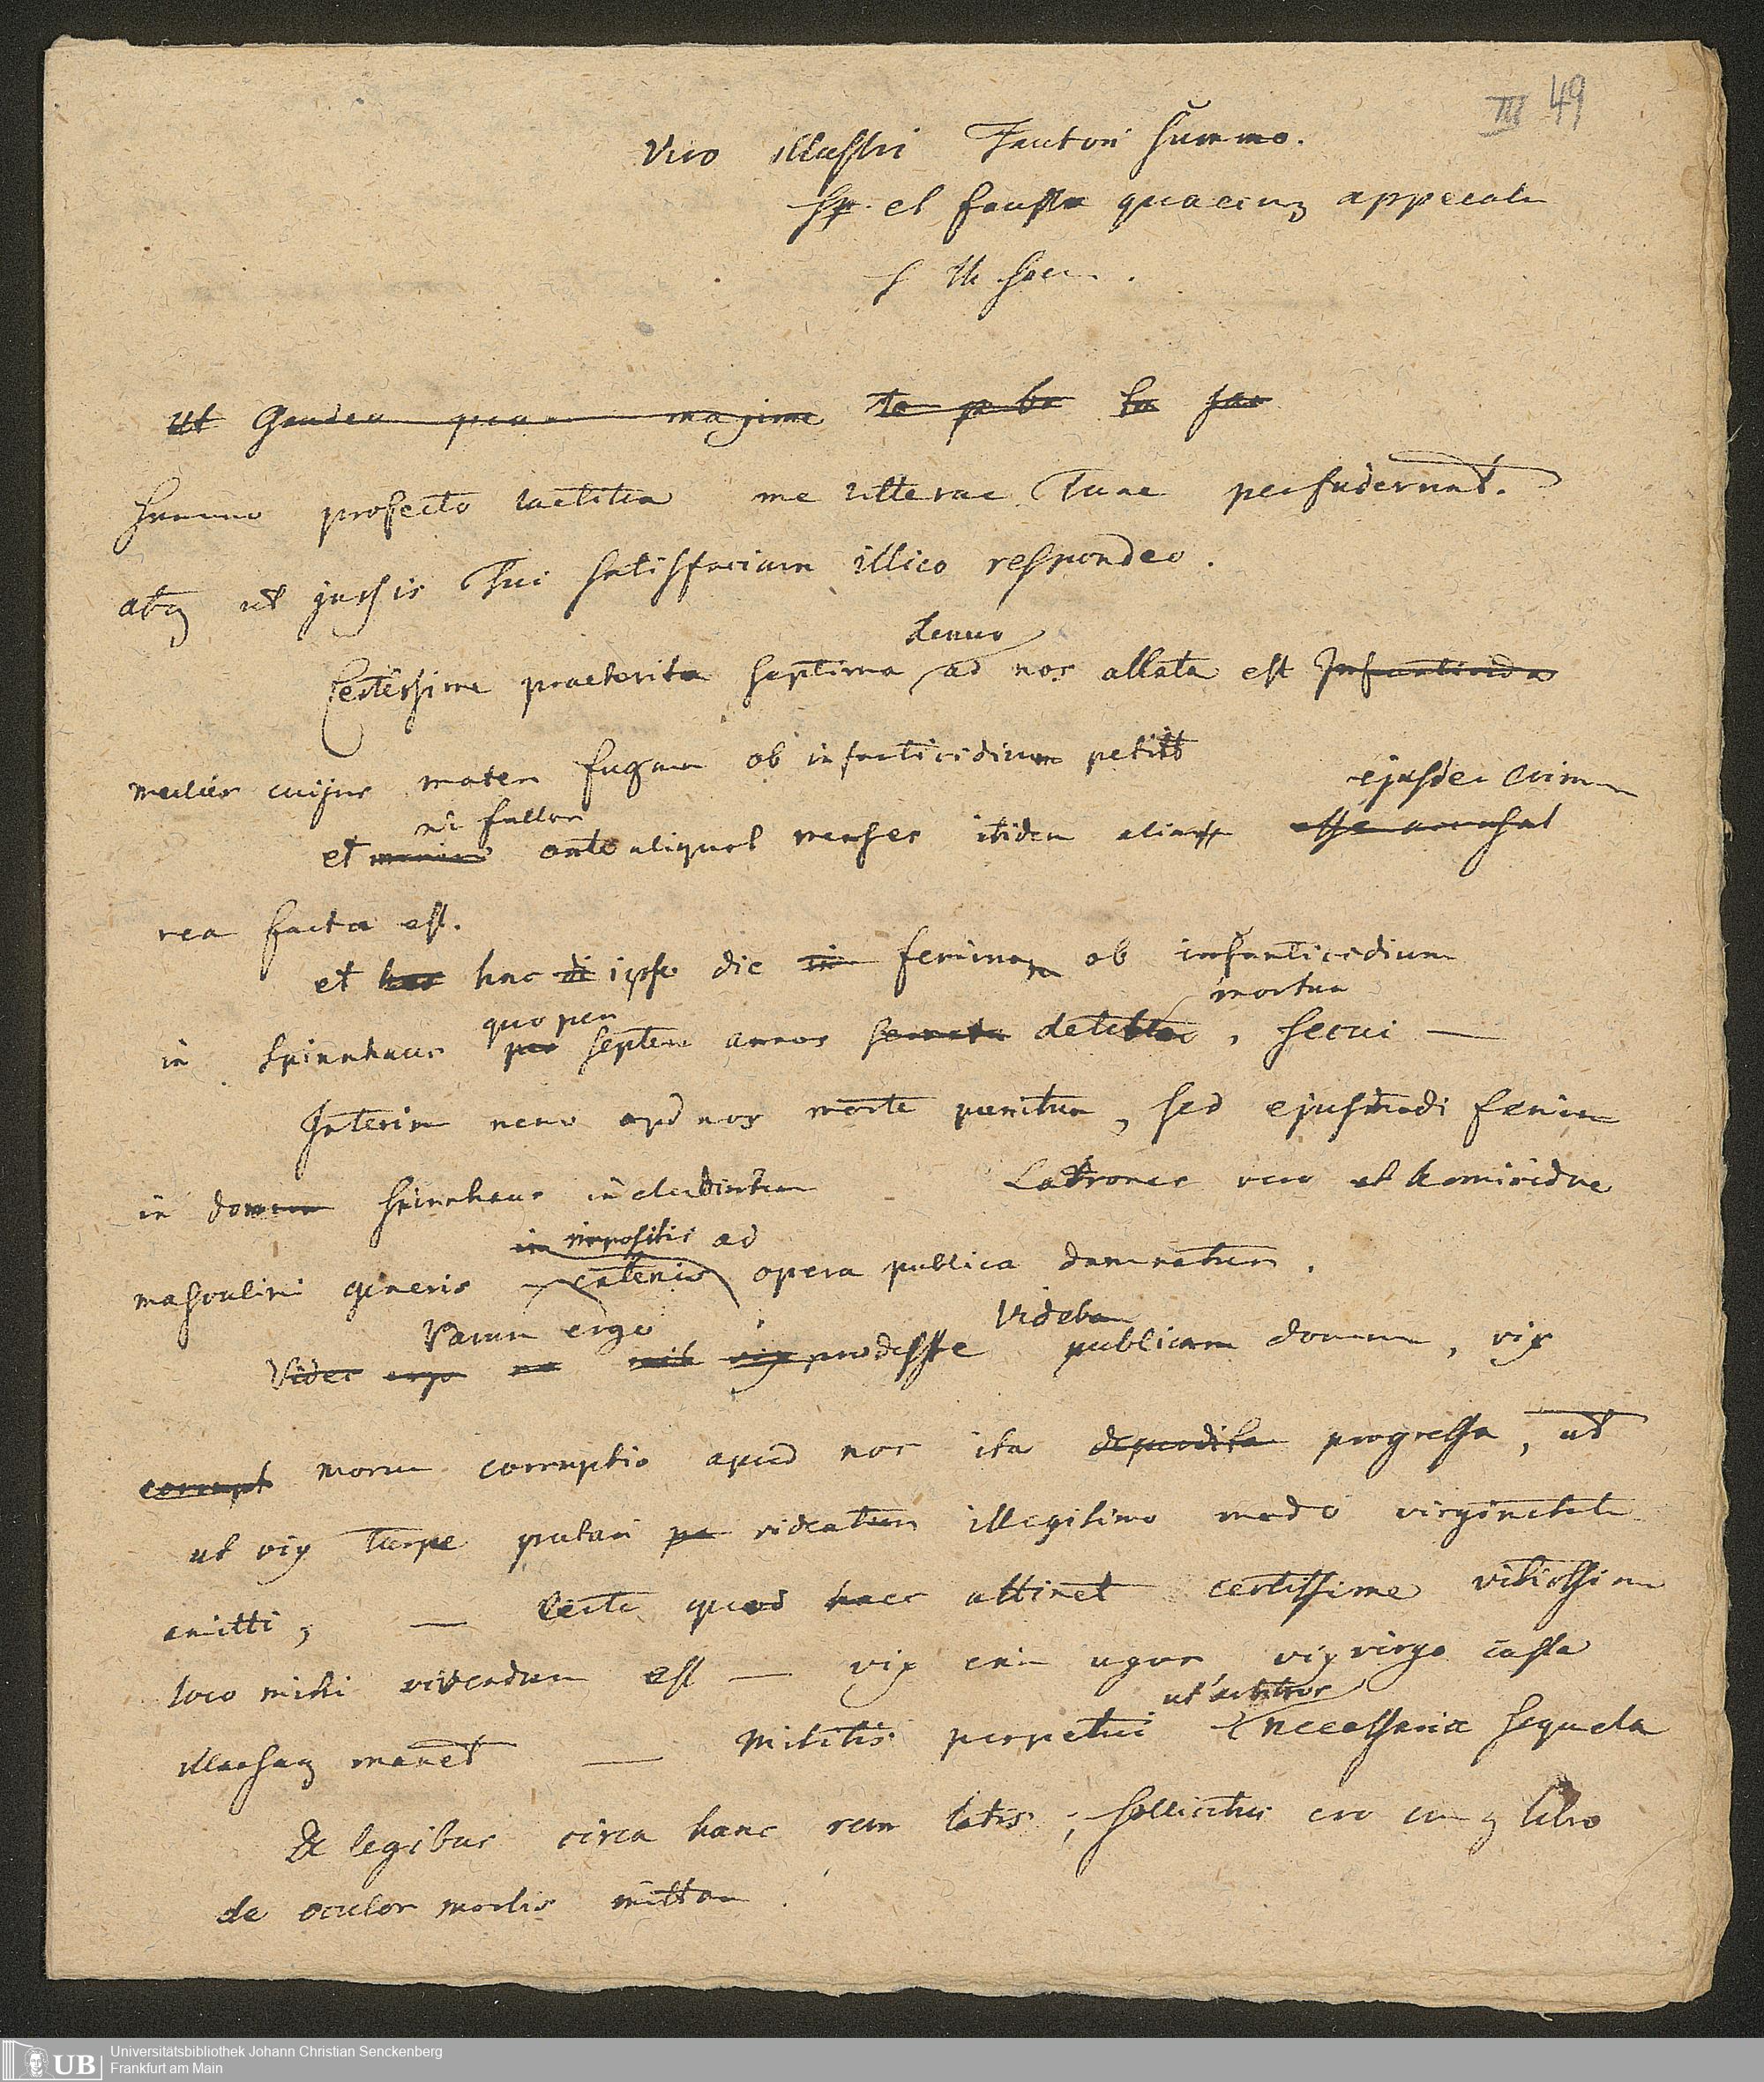 III 49
Viro illustri Fautori summo.
et fausta quaecunq apprecatur
S Th Soem.
Ut Gaudeo quam maxime
Summo profecto laetitia me litterae Tuae perfuderunt.
atq ut jussis Tui satisfaciam illico respondeo.
denuo
Certissime praeterita septima ad nos allata est Infanticida
mulier cuijus mater fugam ob infanticidium petiit
ejusdem crimin
ni fallor
et ante aliquot menses itidem alia esse accusat
rea facta est.
et hac hac di ipso die in feminam ob infanticidium
mortua
quo per
in Spinnhaus per septem annos detenta, secui —
Interim nemo apd nos morte punitur, sed ejusmodi femin
in domum Spinnhaus includuntur Latrones vero et homicidae
in impositis ad
masculini generis catenis opera publica damnatur.
Parum ergo
Videbam
Vides ergo vix prodesse publicam domum, vix
corrupt morum corruptio apud nos ita deperdita progressa, ut
ut vix turpe putari videatur illegitimo modo virginitate
amitti, — Certe quod haec attinet certissime vitiosissimo
loco mihi vivendum est — vix enim uxor, vix virgo casta
ut arbitror
illaesaq manet — Militis perpetui necessaria sequela
De legibus circa hanc rem latis, sollicitus ero cum q libro
de oculor morbis mittam.
Universitätsbibliothek Johann Christian Senckenberg
Frankfurt am Main
UB